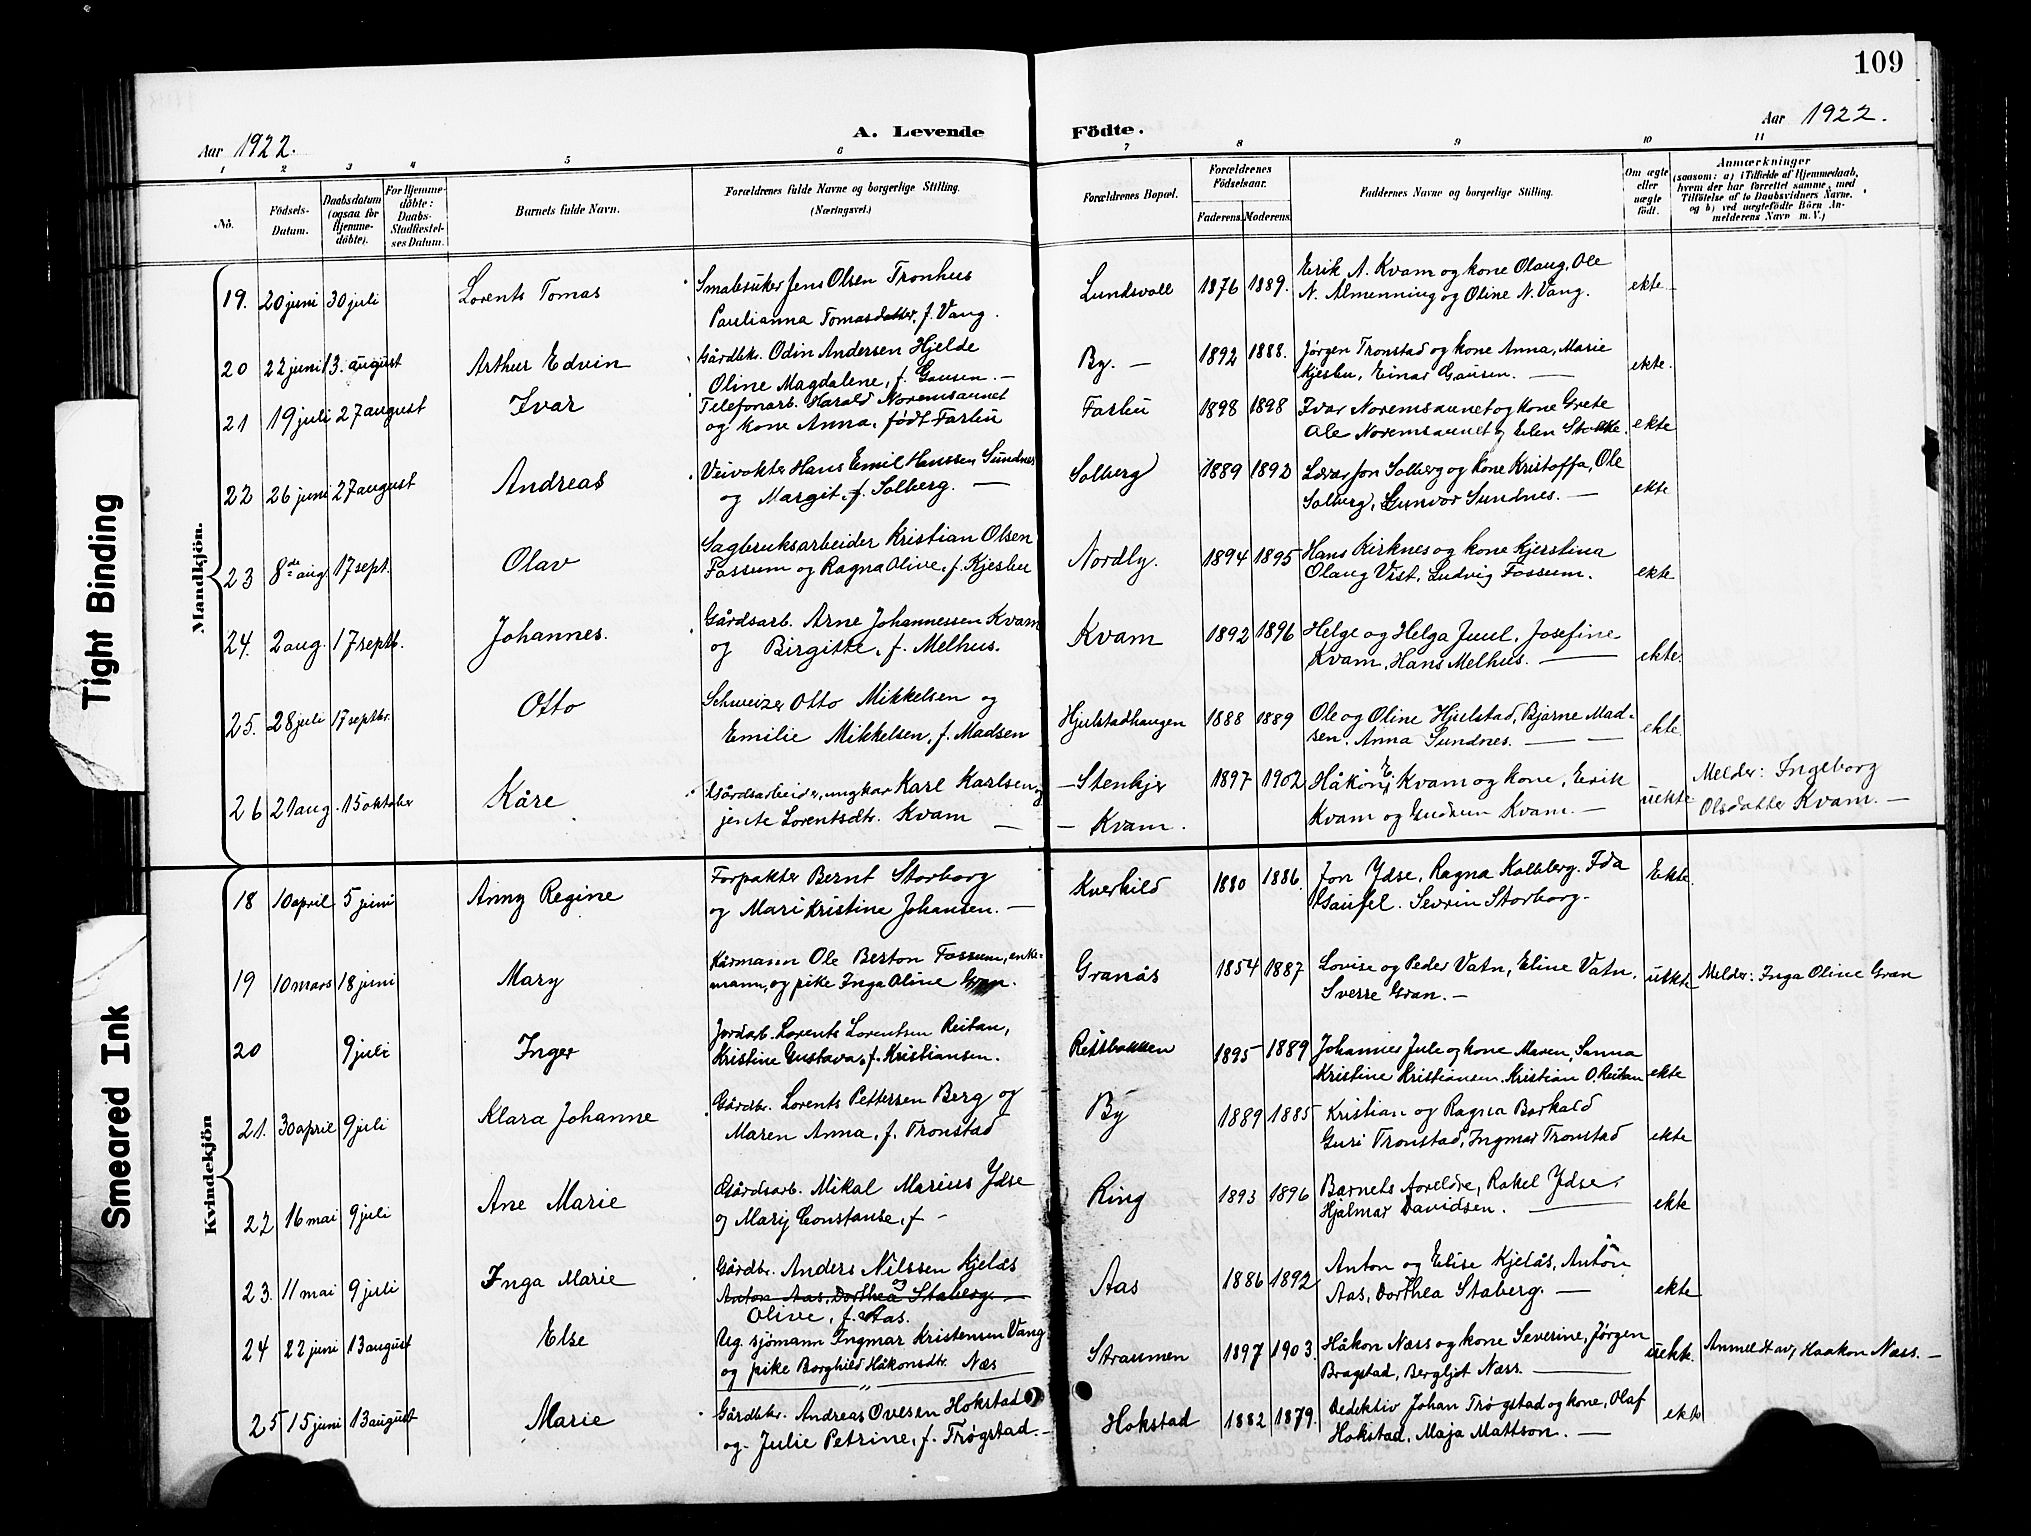 109
Aar 1922.
A. Levende Födte.
Aar 1922.
1 2 3 4 5 6 7 8 9 10 11
No.
Födsels-Datum.
Daabsdatum (ogsaa for Hjemmedöbte).
For Hjemmedöbte: Daabs-Stadfæstelses Datum.
Barnets fulde Navn.
Forældrenes fulde Navne og borgerlige Stilling. (Næringsvei.)
Forældrenes Bopæl.
Forældrenes Fødselsaar.
Faderens. Moderens.
Faddernes Navne og borgerlige Stilling.
Om ægte eller uægte født.
Anmærkninger
(saasom: a) i Tilfælde af Hjemmedaab, hvem der har forrettet samme, med Tilföielse af to Daabsvidners Navne, og b) ved uægtefödte Börn Anmelderens Navn m. V.)
Tight Binding
Smeared Ink
Mandkjön.
19. 20 juni 30 juli Lorents Tomas Smabruker Jens Olsen Tronhus Lundsvoll 1876 1889. Erik A. Kvam og kone Olaug, Ole ekte
Paulianna Tomasdatter, f. Vang. N. Almenning og Oline N. Vang.
20 22 juni 13. august Arthur Edvin Gårdbr. Odin Andersen Hjelde By. — 1892 1888. Jørgen Tronstad og kone Anna, Marie ekte.
Oline Magdalene, f. Gausen. — Kjesbu, Einar Gausen. —
21 19 juli 27 august Ivar Telefonarb. Harald Noremsaunet Farbu 1898 1898 Ivar Noremsaunet og kone Grete ekte
og kone Anna, født Farbu Ole Noremsaunet og Elen Stokke.
22 26 juni 27 august Andreas Veivokter Hans Emil Hanssen Sundnes Solberg 1889 1892 Lærer Jon Solberg og kone Kristoffa, Ole ekte
og Margit, f. Solberg. — Solberg, Gunvor Sundnes. —
23 8de aug. 17 sept. Olav Sagbruksarbeider Kristian Olsen Nordby. 1894 1895 Hans Kirknes og kone Kjerstina ekte
Fossum og Ragna Olive, f. Kjesbu Olaug Vist, Ludvig Fossum.
24. 2 aug. 17 septb. Johannes. Gårdsarb. Arne Johannessen Kvam Kvam 1892 1896 Helge og Helga Juul, Josefine ekte.
og Birgitte, f. Melhus. Kvam, Hans Melhus. —
25. 28 juli 17 septbr. Otto Schweizer Otto Mikkelsen og Hjulstadhaugen 1888 1889 Ole og Oline Hjulstad, Bjarne Mad- ekte.
Emilie Mikkelsen, f. Madsen sen. Anna Sundnes. —
26 21 aug. 15 oktober Kåre Gårdsarbeider, ungkar Karl Karlsen og — Stenkjer 1897 1902 Håkon E. Kvam og kone, Erik uekte Melder: Ingeborg
jente Lorentsdtr. Kvam — — Kvam. Kvam og Gudrun Kvam. — Olsdatter Kvam. —
Kvindekjön
18 10 april 5 juni Anny Regine Forpakter Bernt Storborg Kverkild 1880 1886. Jon Ydse, Ragna Kolberg. Ida Ekte.
og Mari Kristine Johansen. — Gaupel. Sevrin Storborg.
19 10 mars 18 juni Mary Kårmann Ole Berton Fossum, enke- Granås 1854 1887 Lovise og Peder Vatn, Eline Vatn. uekte Melder: Inga Oline Gran
mann, og pike Inga Oline Gran. Sverre Gran. —
20 9 juli Inger Jordarb. Lorents Lorentsen Reitan, Reitbakken 1895 1889 Johannes Jule og kone Maren, Sanna ekte
Kristine Gustava, f. Kristiansen. Kristine Kristiansen. Kristian O. Reitan
21. 30 april 9 juli Klara Johanne Gårdbr. Lorents Pettersen Berg og By 1889 1885 Kristian og Ragna Borkald ekte
Maren Anna, f. Tronstad Guri Tronstad, Ingmar Tronstad
22 16 mai 9 juli Ane Marie Gårdsarb. Mikal Marius Ydse Ring 1893 1896 Barnets foreldre, Rakel Ydse, ekte
og Mary Constanse, f — Hjalmar Davidsen. —
23. 11 mai 9 juli Inga Marie Gårdbr. Anders Nilssen Kjelås Aas 1886 1892 Anton og Elise Kjelås, Anton ekte
Anton Aas, Dorthea Staberg. — og Aas, Dorthea Staberg. —
Olive, f. Aas.
24 22 juni 13 august Else Ug. sjømann Ingmar Kristensen Vang Straumen 1897 1903. Håkon Næss og kone Severine, Jørgen uekte. Anmeldt av, Haakon Næss. —
og pike Borghild Håkonsdtr. Næs Bragstad, Bergljot Næss.
25 15 juni 13 august Marie Gårdbr. Andreas Ovesen Hokstad Hokstad 1882 1879. Dedektiv Johan Trøgstad og kone, Olaf ekte
og Julie Petrine, f. Trøgstad. — Hokstad, Maja Mattson. —